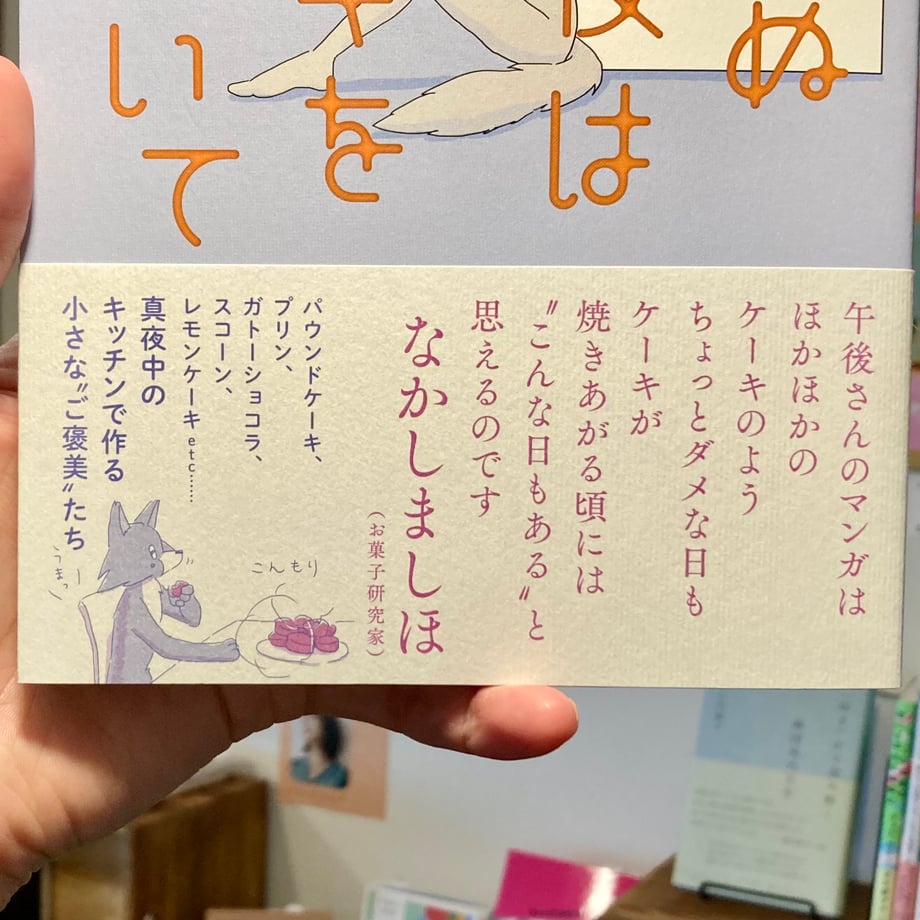 ぬ
夜は
キを
いて
午後さんのマンガは
ほかほかの
ケーキのよう
ちょっとダメな日も
ケーキが
焼きあがる頃には
〝こんな日もある〟と
思えるのです
なかしましほ
(お菓子研究家)
パウンドケーキ、
プリン、
ガトーショコラ、
スコーン、
レモンケーキetc……
真夜中の
キッチンで作る
小さな〝ご褒美〟たち
こんもり
うまっ